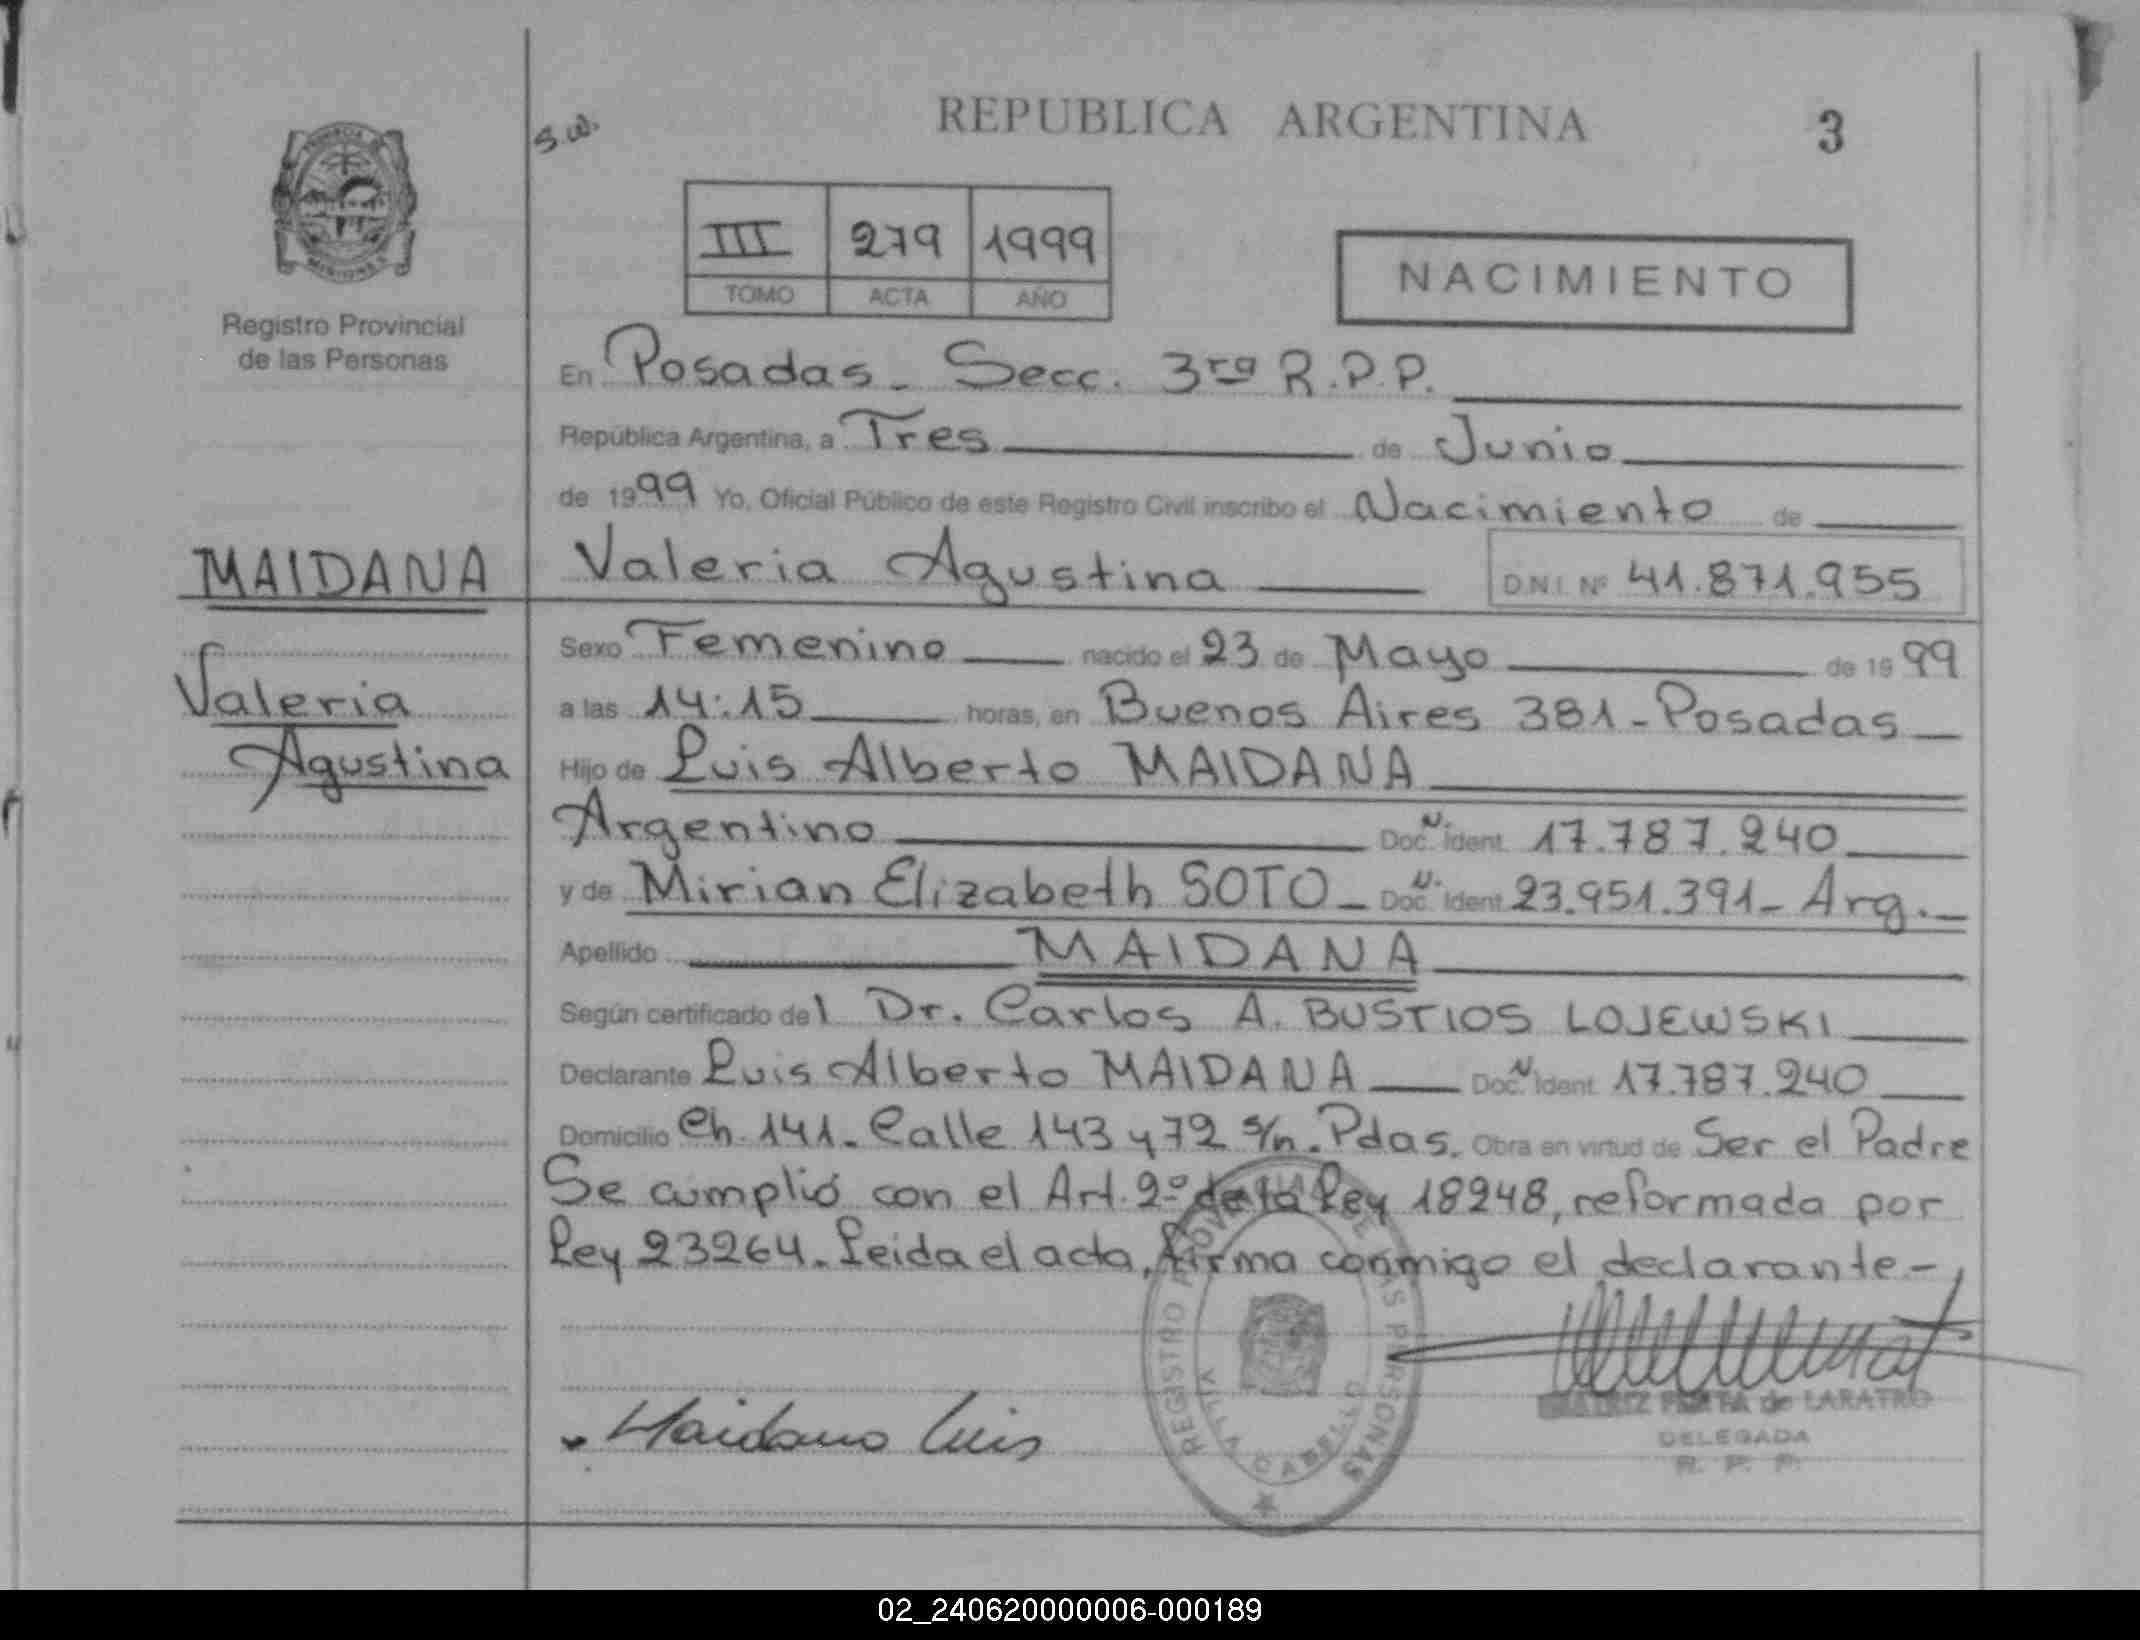 REPUBLICA ARGENTINA
3
S.W.
PROVINCIA DE MISIONES
Registro Provincial
de las Personas
III 279 1999
TOMO ACTA AÑO
NACIMIENTO
En Posadas - Secc. 3ra R.P.P.
República Argentina, a Tres de Junio
de 1999 Yo, Oficial Público de este Registro Civil inscribo el Nacimiento de
MAIDANA
Valeria Agustina D.N.I. Nº 41.871.955
Valeria
Agustina
Sexo Femenino nacido el 23 de Mayo de 1999
a las 14:15 horas, en Buenos Aires 381 - Posadas
Hijo de Luis Alberto MAIDANA
Argentino Doc. N. Ident. 17.787.240
y de Mirian Elizabeth SOTO - Doc. N. Ident 23.951.391 - Arg.
Apellido MAIDANA
Según certificado del Dr. Carlos A. BUSTIOS LOJEWSKI
Declarante Luis Alberto MAIDANA Doc. N Ident. 17.787.240
Domicilio Ch. 141 - Calle 143 y 72 s/n. Pdas. Obra en virtud de Ser el Padre
Se cumplió con el Art. 2º de la Ley 18248, reformada por
Ley 23264. Leida el acta, firma conmigo el declarante -
REGISTRO PROVINCIAL DE LAS PERSONAS
VILLA CABELLO
Maidana Luis
de LARATRO
DELEGADA
R. P. P.
02_240620000006-000189